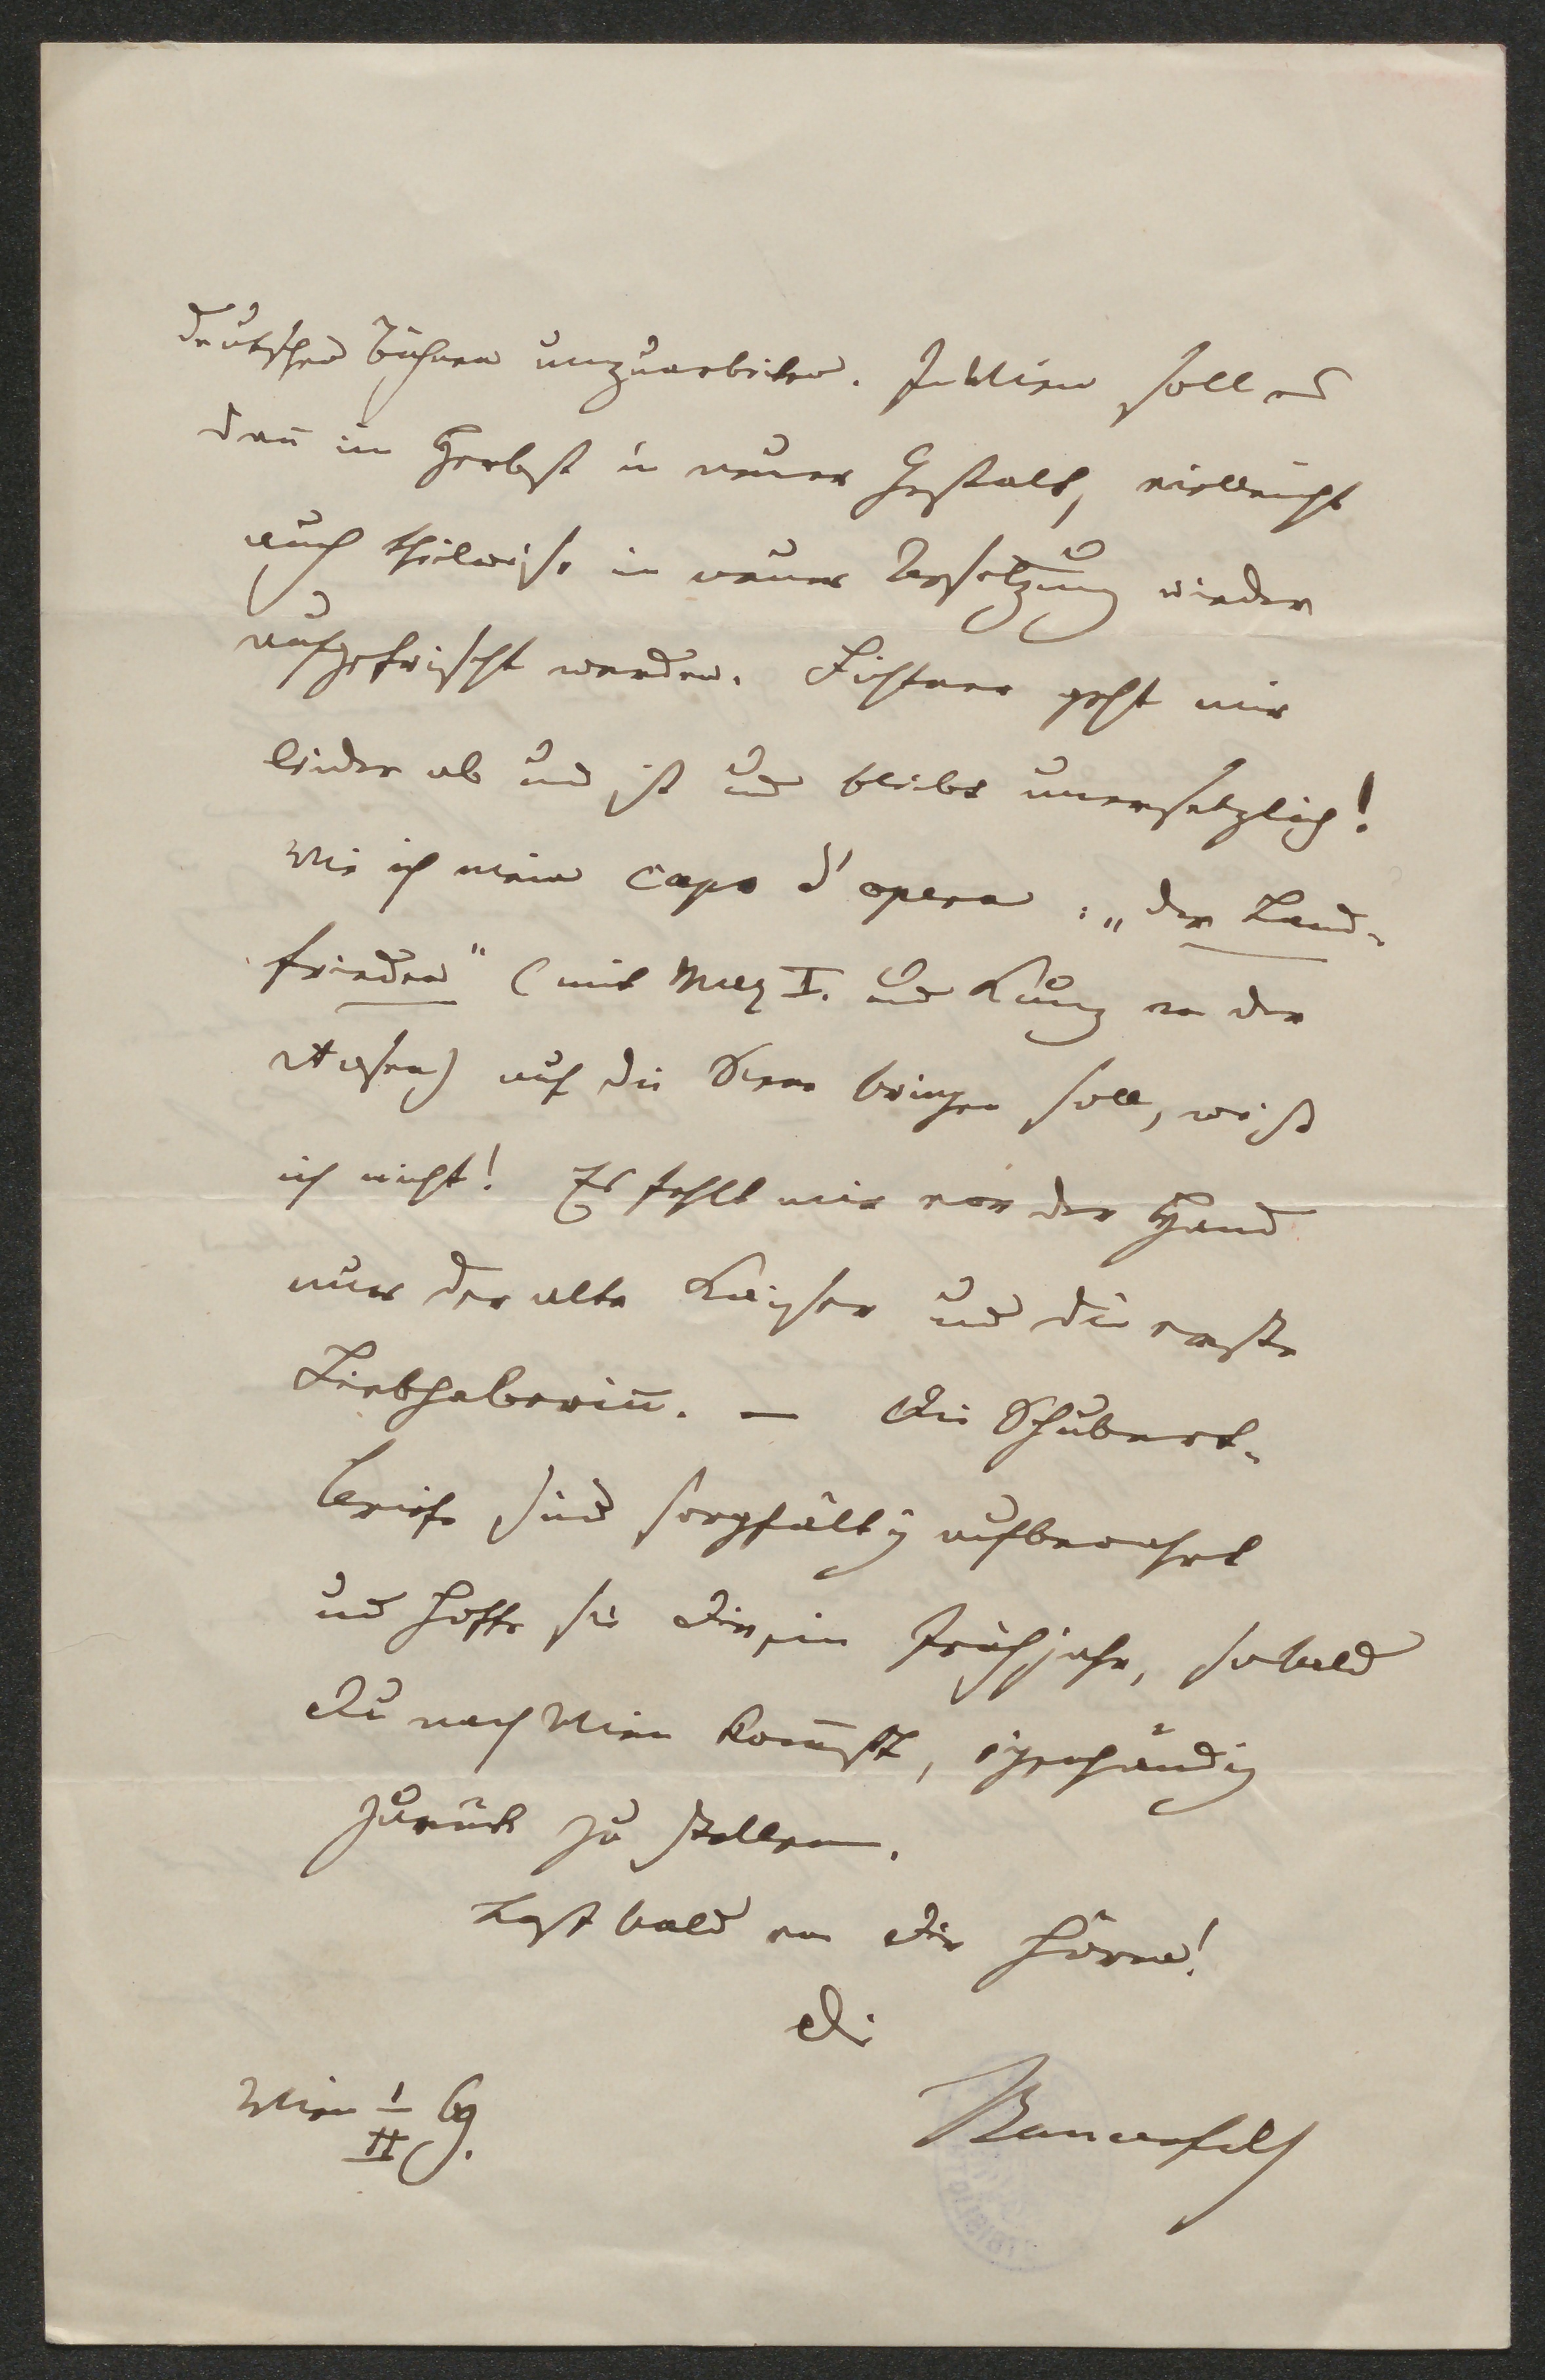 deutschen Bühnen umzuarbeiten. In Wien soll es
dañ im Herbst in neuer Gestalt, vielleicht
auch theilweise in neuer Besetzung wieder
aufgefrischt werden. Fichtner geht mir
leider ab und ist und bleibt unersetzlich!
Wie ich mein capo d'opera: „der Land-
frieden" (mit Max I. und Kunz v. der
Rosen) auf die Scene bringen soll, weiß
ich nicht! Es fehlt mir vor der Hand
nur der alte Kaiser und die erste
Liebhaberiñ. — Die Schubert-
briefe sind sorgfältig aufbewahrt
und hoffe sie Dir, im Frühjahr, sobald
Du nach Wien kom̄st, eigenhändig
zurück zu stellen.
Laß bald von Dir hören!
Dein
Bauernfeld
Wien 1/II 69.